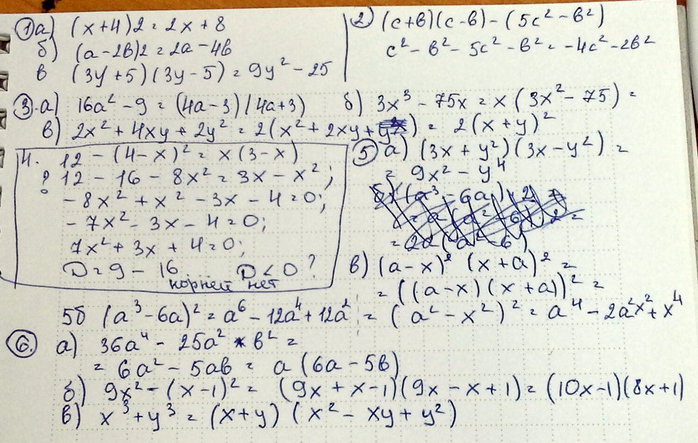 ① а) (x+4)2 = 2x + 8
б) (a-2b)2 = 2a - 4b
в (3y+5)(3y-5) = 9y² - 25
2) (c+b)(c-b) - (5c² - b²)
c² - b² - 5c² - b² = -4c² - 2b²
③ а) 16a² - 9 = (4a-3)(4a+3) б) 3x³ - 75x = x(3x² - 75) =
в) 2x² + 4xy + 2y² = 2(x² + 2xy + y²) = 2(x+y)²
4. 12 - (4-x)² = x(3-x)
? 12 - 16 - 8x² = 3x - x²;
- 8x² + x² - 3x - 4 = 0;
- 7x² - 3x - 4 = 0;
7x² + 3x + 4 = 0;
D = 9 - 16 D < 0 ?
корней нет
⑤ а) (3x + y²)(3x - y²) =
= 9x² - y⁴
в) (a-x)² (x+a)² =
= ((a-x)(x+a))² =
= (a² - x²)² = a⁴ - 2a²x² + x⁴
5б (a³ - 6a)² = a⁶ - 12a⁴ + 12a²
⑥ а) 36a⁴ - 25a² * b² =
= 6a² - 5ab = a(6a - 5b)
б) 9x² - (x-1)² = (9x + x - 1)(9x - x + 1) = (10x-1)(8x+1)
в) x³ + y³ = (x+y)(x² - xy + y²)